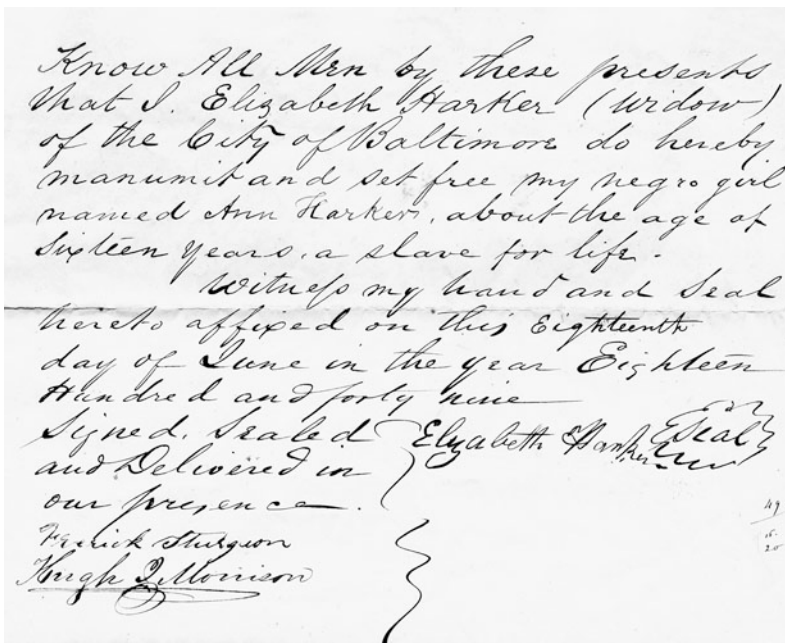 Know All Men by these presents
that I. Elizabeth Harker (widow)
of the City of Baltimore do hereby
manumit and set free my negro girl
named Ann Harker, about the age of
Sixteen Years, a slave for life.
Witness my hand and Seal
hereto affixed on this Eighteenth
day of June in the year Eighteen
Hundred and forty nine
Signed, Sealed
and Delivered in
our presence.
Elizabeth Harker Seal
Sturgeon
Hugh Morrison
49
20